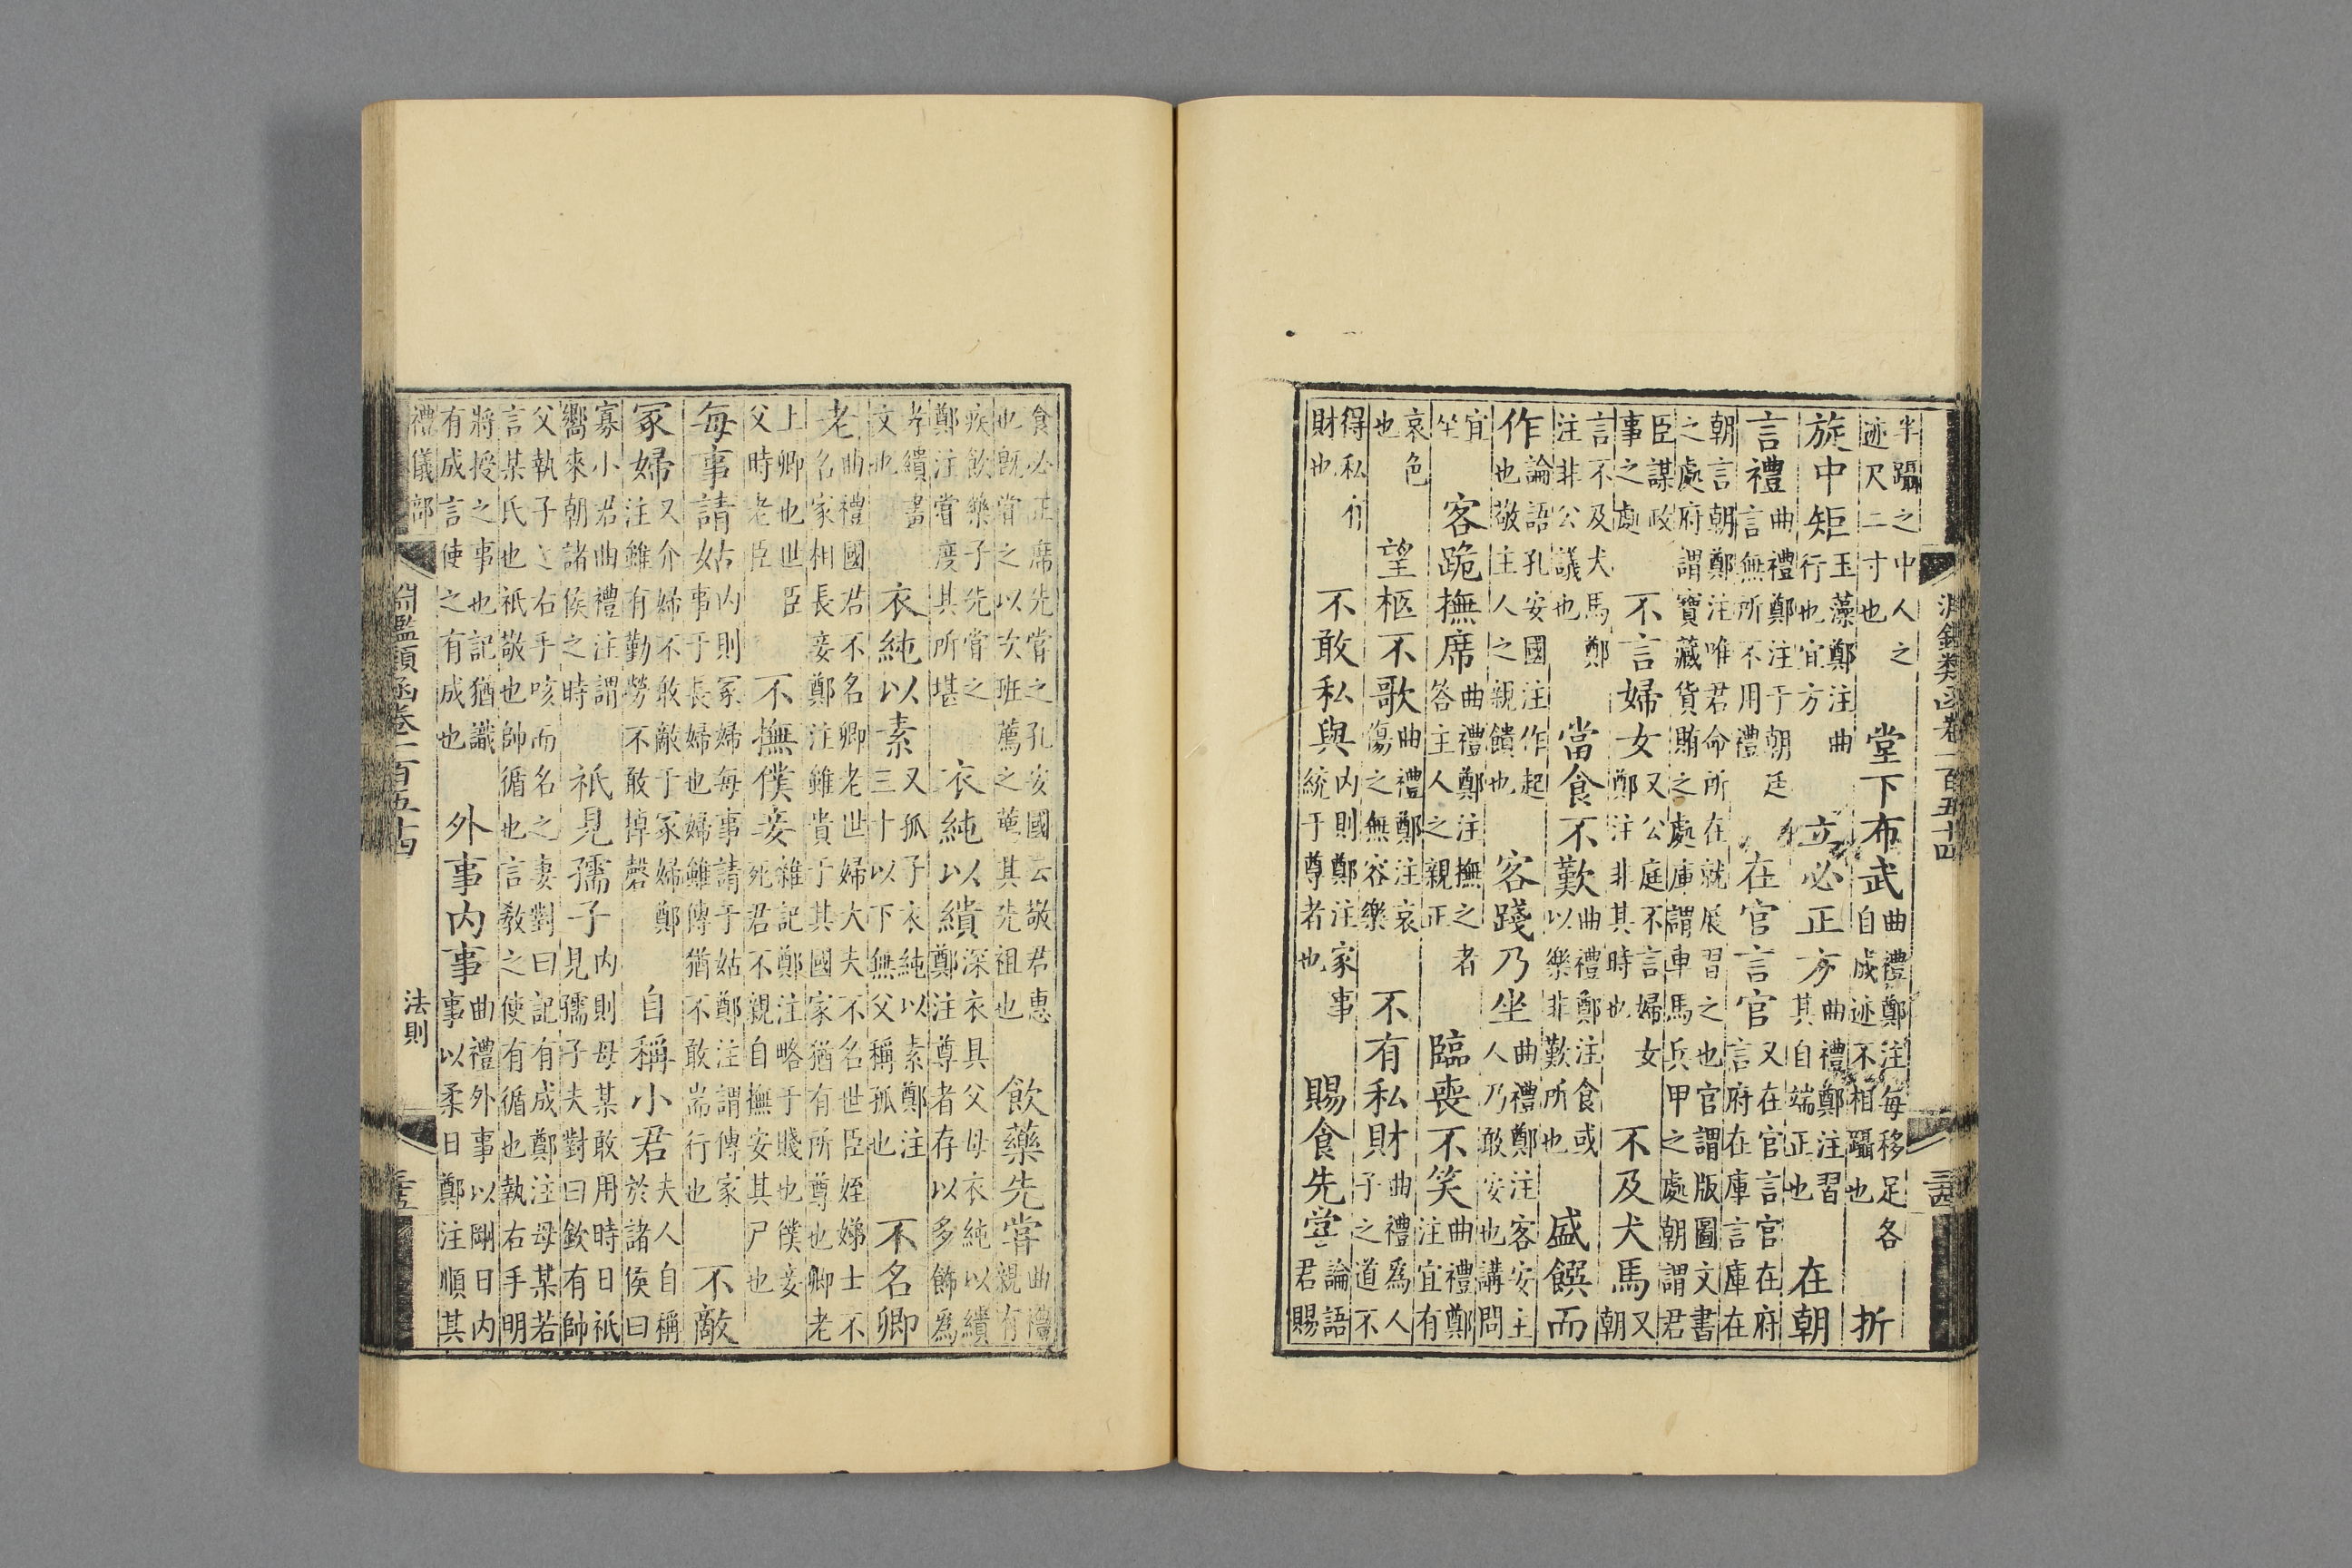 淵鑑類函卷一百五十四 三四
半躡之中人之迹尺二寸也 堂下布武 曲禮鄭注每移足各自成迹不相躡也 折
旋中矩 玉藻鄭注曲行也宜方 立必正方 曲禮鄭注習其自端正也 在朝
言禮 曲禮鄭注于朝廷言無所不用禮 在官言官 又在官言官在府言府在庫言庫在
朝言朝鄭注唯君命所在就展習之也官謂版圖文書之處府謂寶藏貨賄之處庫謂車馬兵甲之處朝謂君
臣謀政事之處 不言婦女 又公庭不言婦女鄭注非其時也 不及犬馬 又朝
言不及犬馬鄭注非公議也 當食不歎 曲禮鄭注食或以樂非歎所也 盛饌而
作 論語孔安國注作起也敬主人之親饋也 客踐乃坐 曲禮鄭注客安主人乃敢安也講問
宜坐 客跪撫席 曲禮鄭注撫之者答主人之親正 臨喪不笑 曲禮鄭注宜有
哀色也 望柩不歌 曲禮鄭注哀傷之無容樂 不有私財 曲禮爲人子之道不
得私財也 不敢私與 内則鄭注家事統于尊者也 賜食先嘗 論語君賜
食必正席先嘗之孔安國云敬君惠也旣嘗之以次班薦之薦其先祖也 飲藥先嘗 曲禮親有
疾飲藥子先嘗之鄭注嘗度其所堪 衣純以繢 深衣具父母衣純以繢鄭注尊者存以多飾爲
孝繢畫文也 衣純以素 又孤子衣純以素鄭注三十以下無父稱孤也 不名卿
老 曲禮國君不名卿老世婦大夫不名世臣姪娣士不名家相長妾鄭注雖貴于其國家猶有所尊也卿老
上卿也世臣父時老臣 不撫僕妾 雜記鄭注略于賤也僕妾死君不親自撫安其尸也
每事請 姑内則冢婦每事請于姑鄭注謂傳家女事于長婦也婦雖傳猶不敢耑行也 不敵
冢婦 又介婦不敢敵于冢婦鄭注雖有勤勞不敢掉磬 自稱小君 夫人自稱於諸侯曰
寡小君曲禮注謂嚮來朝諸侯之時 祇見孺子 内則母某敢用時日祇見孺子夫對曰欽有帥
父執子之右手咳而名之妻對曰記有成鄭注母某若言某氏也祇敬也帥循也言敎之使有循也執右手明
將授之事也記猶識有成言使之有成也 外事内事 曲禮外事以剛日内事以柔日鄭注順其
禮儀部 淵鑑類函卷一百五十四 法則 三五